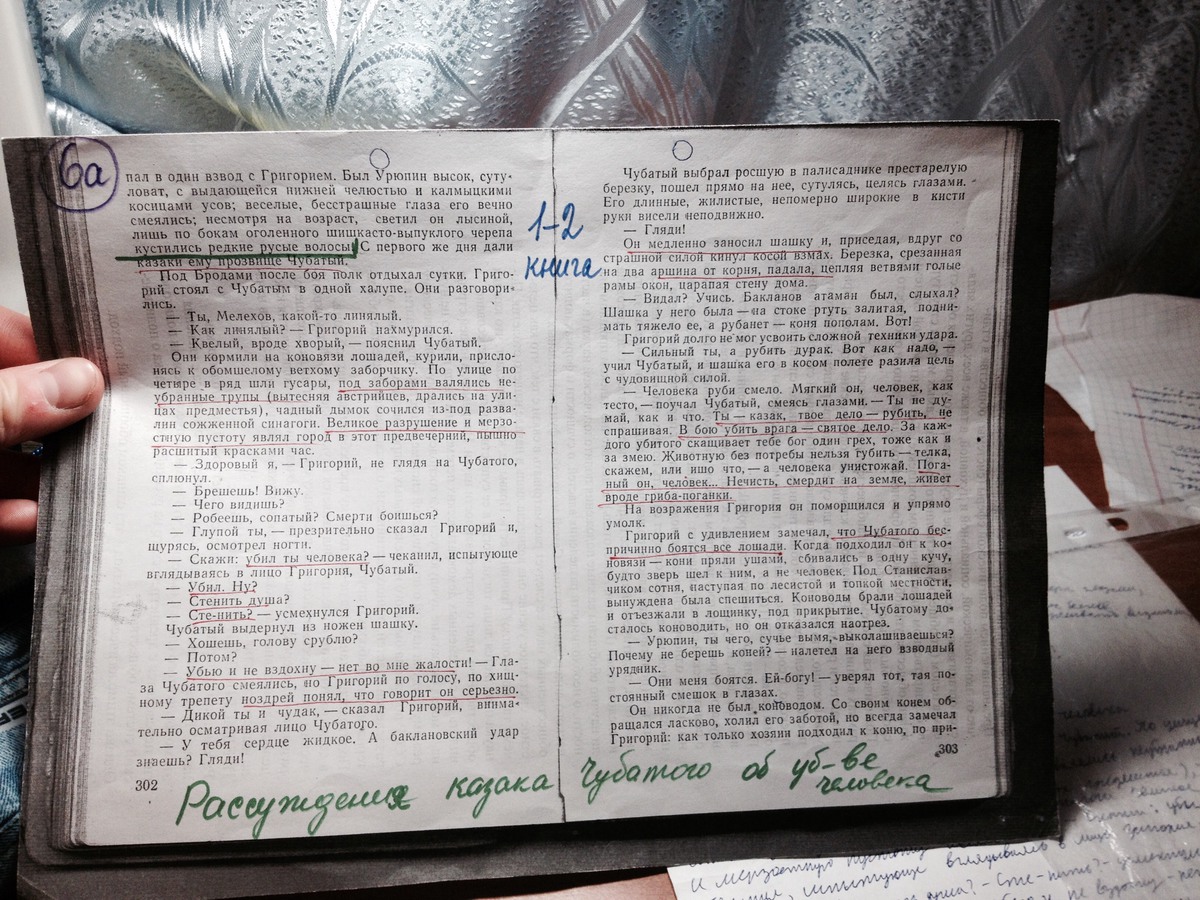 6а
пал в один взвод с Григорием. Был Урюпин высок, суту-
ловат, с выдающейся нижней челюстью и калмыцкими
косицами усов; веселые, бесстрашные глаза его вечно
смеялись; несмотря на возраст, светил он лысиной,
лишь по бокам оголенного шишкасто-выпуклого черепа
кустились редкие русые волосы. С первого же дня дали
казаки ему прозвище Чубатый.
Под Бродами после боя полк отдыхал сутки. Григо-
рий стоял с Чубатым в одной халупе. Они разговори-
лись.
— Ты, Мелехов, какой-то линялый.
— Как линялый? — Григорий нахмурился.
— Квелый, вроде хворый, — пояснил Чубатый.
Они кормили на коновязи лошадей, курили, присло-
нясь к обомшелому ветхому заборчику. По улице по
четыре в ряд шли гусары, под заборами валялись не-
убранные трупы (вытесняя австрийцев, дрались на ули-
цах предместья), чадный дымок сочился из-под разва-
лин сожженной синагоги. Великое разрушение и мерзо-
стную пустоту являл город в этот предвечерний, пышно
расшитый красками час.
— Здоровый я, — Григорий, не глядя на Чубатого,
сплюнул.
— Брешешь! Вижу.
— Чего видишь?
— Робеешь, сопатый? Смерти боишься?
— Глупой ты, — презрительно сказал Григорий и,
щурясь, осмотрел ногти.
— Скажи: убил ты человека? — чеканил, испытующе
вглядываясь в лицо Григория, Чубатый.
— Убил. Ну?
— Стенить душа?
— Сте-нить? — усмехнулся Григорий.
Чубатый выдернул из ножен шашку.
— Хошешь, голову срублю?
— Потом?
— Убью и не вздохну — нет во мне жалости! — Гла-
за Чубатого смеялись, но Григорий по голосу, по хищ-
ному трепету ноздрей понял, что говорит он серьезно.
— Дикой ты и чудак, — сказал Григорий, внима-
тельно осматривая лицо Чубатого.
— У тебя сердце жидкое. А баклановский удар
знаешь? Гляди!
302
1-2
книга
Чубатый выбрал росшую в палисаднике престарелую
березку, пошел прямо на нее, сутулясь, целясь глазами.
Его длинные, жилистые, непомерно широкие в кисти
руки висели неподвижно.
— Гляди!
Он медленно заносил шашку и, приседая, вдруг со
страшной силой кинул косой взмах. Березка, срезанная
на два аршина от корня, падала, цепляя ветвями голые
рамы окон, царапая стену дома.
— Видал? Учись. Бакланов атаман был, слыхал?
Шашка у него была — на стоке ртуть залитая, подни-
мать тяжело ее, а рубанет — коня пополам. Вот!
Григорий долго не мог усвоить сложной техники удара.
— Сильный ты, а рубить дурак. Вот как надо, —
учил Чубатый, и шашка его в косом полете разила цель
с чудовищной силой.
— Человека руби смело. Мягкий он, человек, как
тесто, — поучал Чубатый, смеясь глазами. — Ты не ду-
май, как и что. Ты — казак, твое дело — рубить, не
спрашивая. В бою убить врага — святое дело. За каж-
дого убитого скащивает тебе бог один грех, тоже как и
за змею. Животную без потребы нельзя губить — телка,
скажем, или ишо что, — а человека унистожай. Пога-
ный он, человек... Нечисть, смердит на земле, живет
вроде гриба-поганки.
На возражения Григория он поморщился и упрямо
умолк.
Григорий с удивлением замечал, что Чубатого бес-
причинно боятся все лошади. Когда подходил он к ко-
новязи — кони пряли ушами, сбивались в одну кучу,
будто зверь шел к ним, а не человек. Под Станислав-
чиком сотня, наступая по лесистой и топкой местности,
вынуждена была спешиться. Коноводы брали лошадей
и отъезжали в лощинку, под прикрытие. Чубатому до-
сталось коноводить, но он отказался наотрез.
— Урюпин, ты чего, сучье вымя, выколашиваешься?
Почему не берешь коней? — налетел на него взводный
урядник.
— Они меня боятся. Ей-богу! — уверял тот, тая по-
стоянный смешок в глазах.
Он никогда не был коноводом. Со своим конем об-
ращался ласково, холил его заботой, но всегда замечал
Григорий: как только хозяин подходил к коню, по при-
303
Рассуждения казака Чубатого об уб-ве
человека